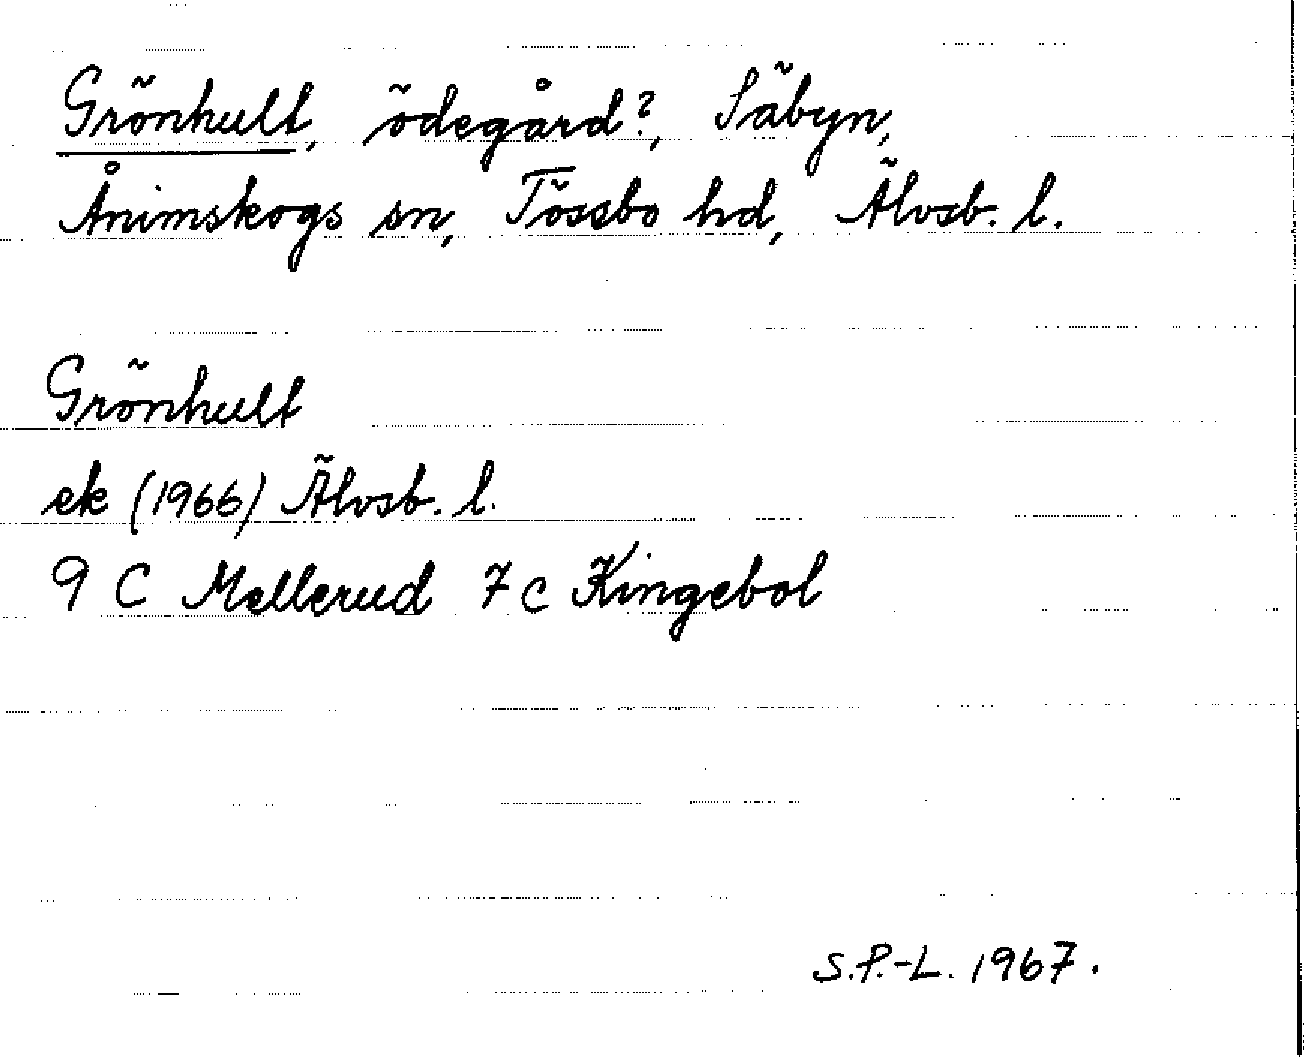 Grönhult, ödegård?, Säbyn,
Ånimskogs sn, Tössbo hd, Älvsb. l.
Grönhult
ek (1966) Älvsb. l.
9 C Mellerud 7 c Kingebol
S.P.-L. 1967.